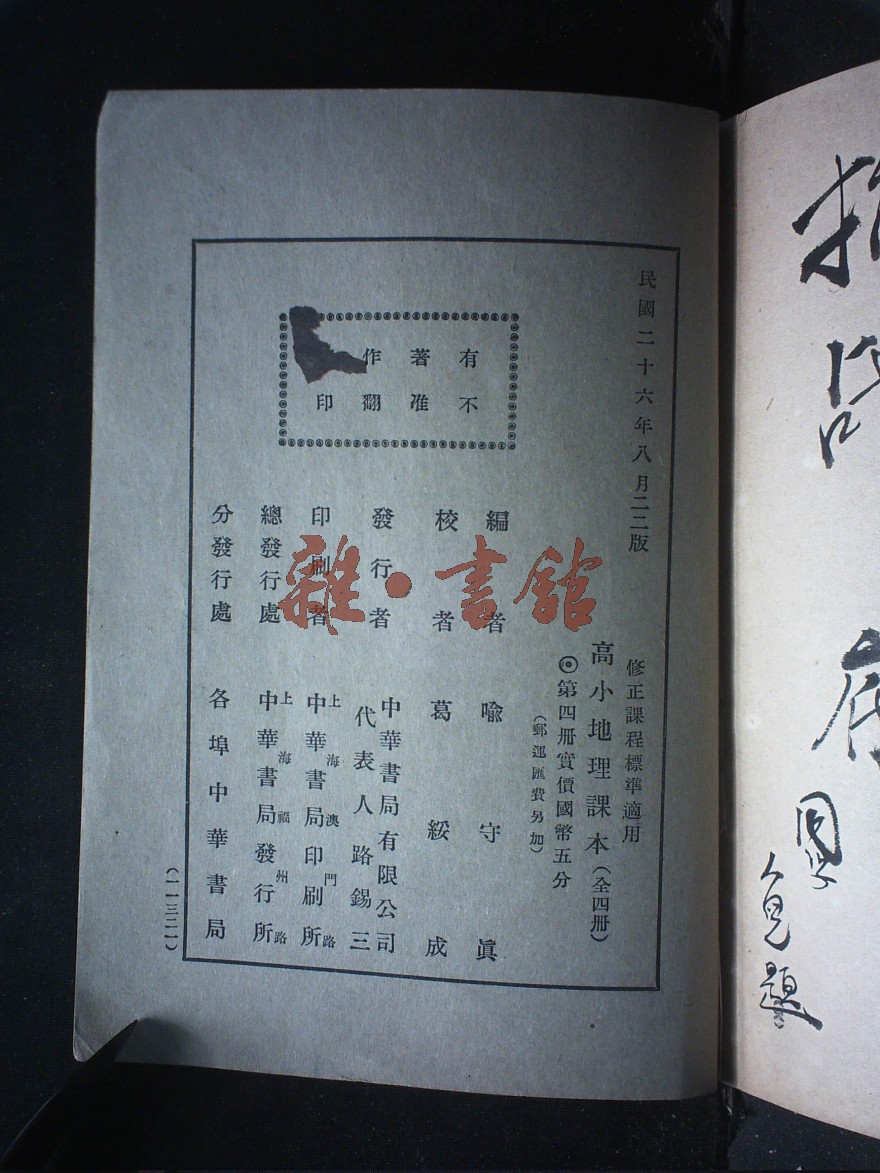 民國二十六年八月二二版
修正課程標準適用
高小地理課本（全四冊）
◎第四冊實價國幣五分
（郵運匯費另加）
有著作
不准翻印
編者 喩守眞
校者 葛綏成
發行者 中華書局有限公司
代表人路錫三
印刷者 上海澳門路
中華書局印刷所
總發行處 上海福州路
中華書局發行所
分發行處 各埠中華書局
（一一三二一）
雜·書館
題